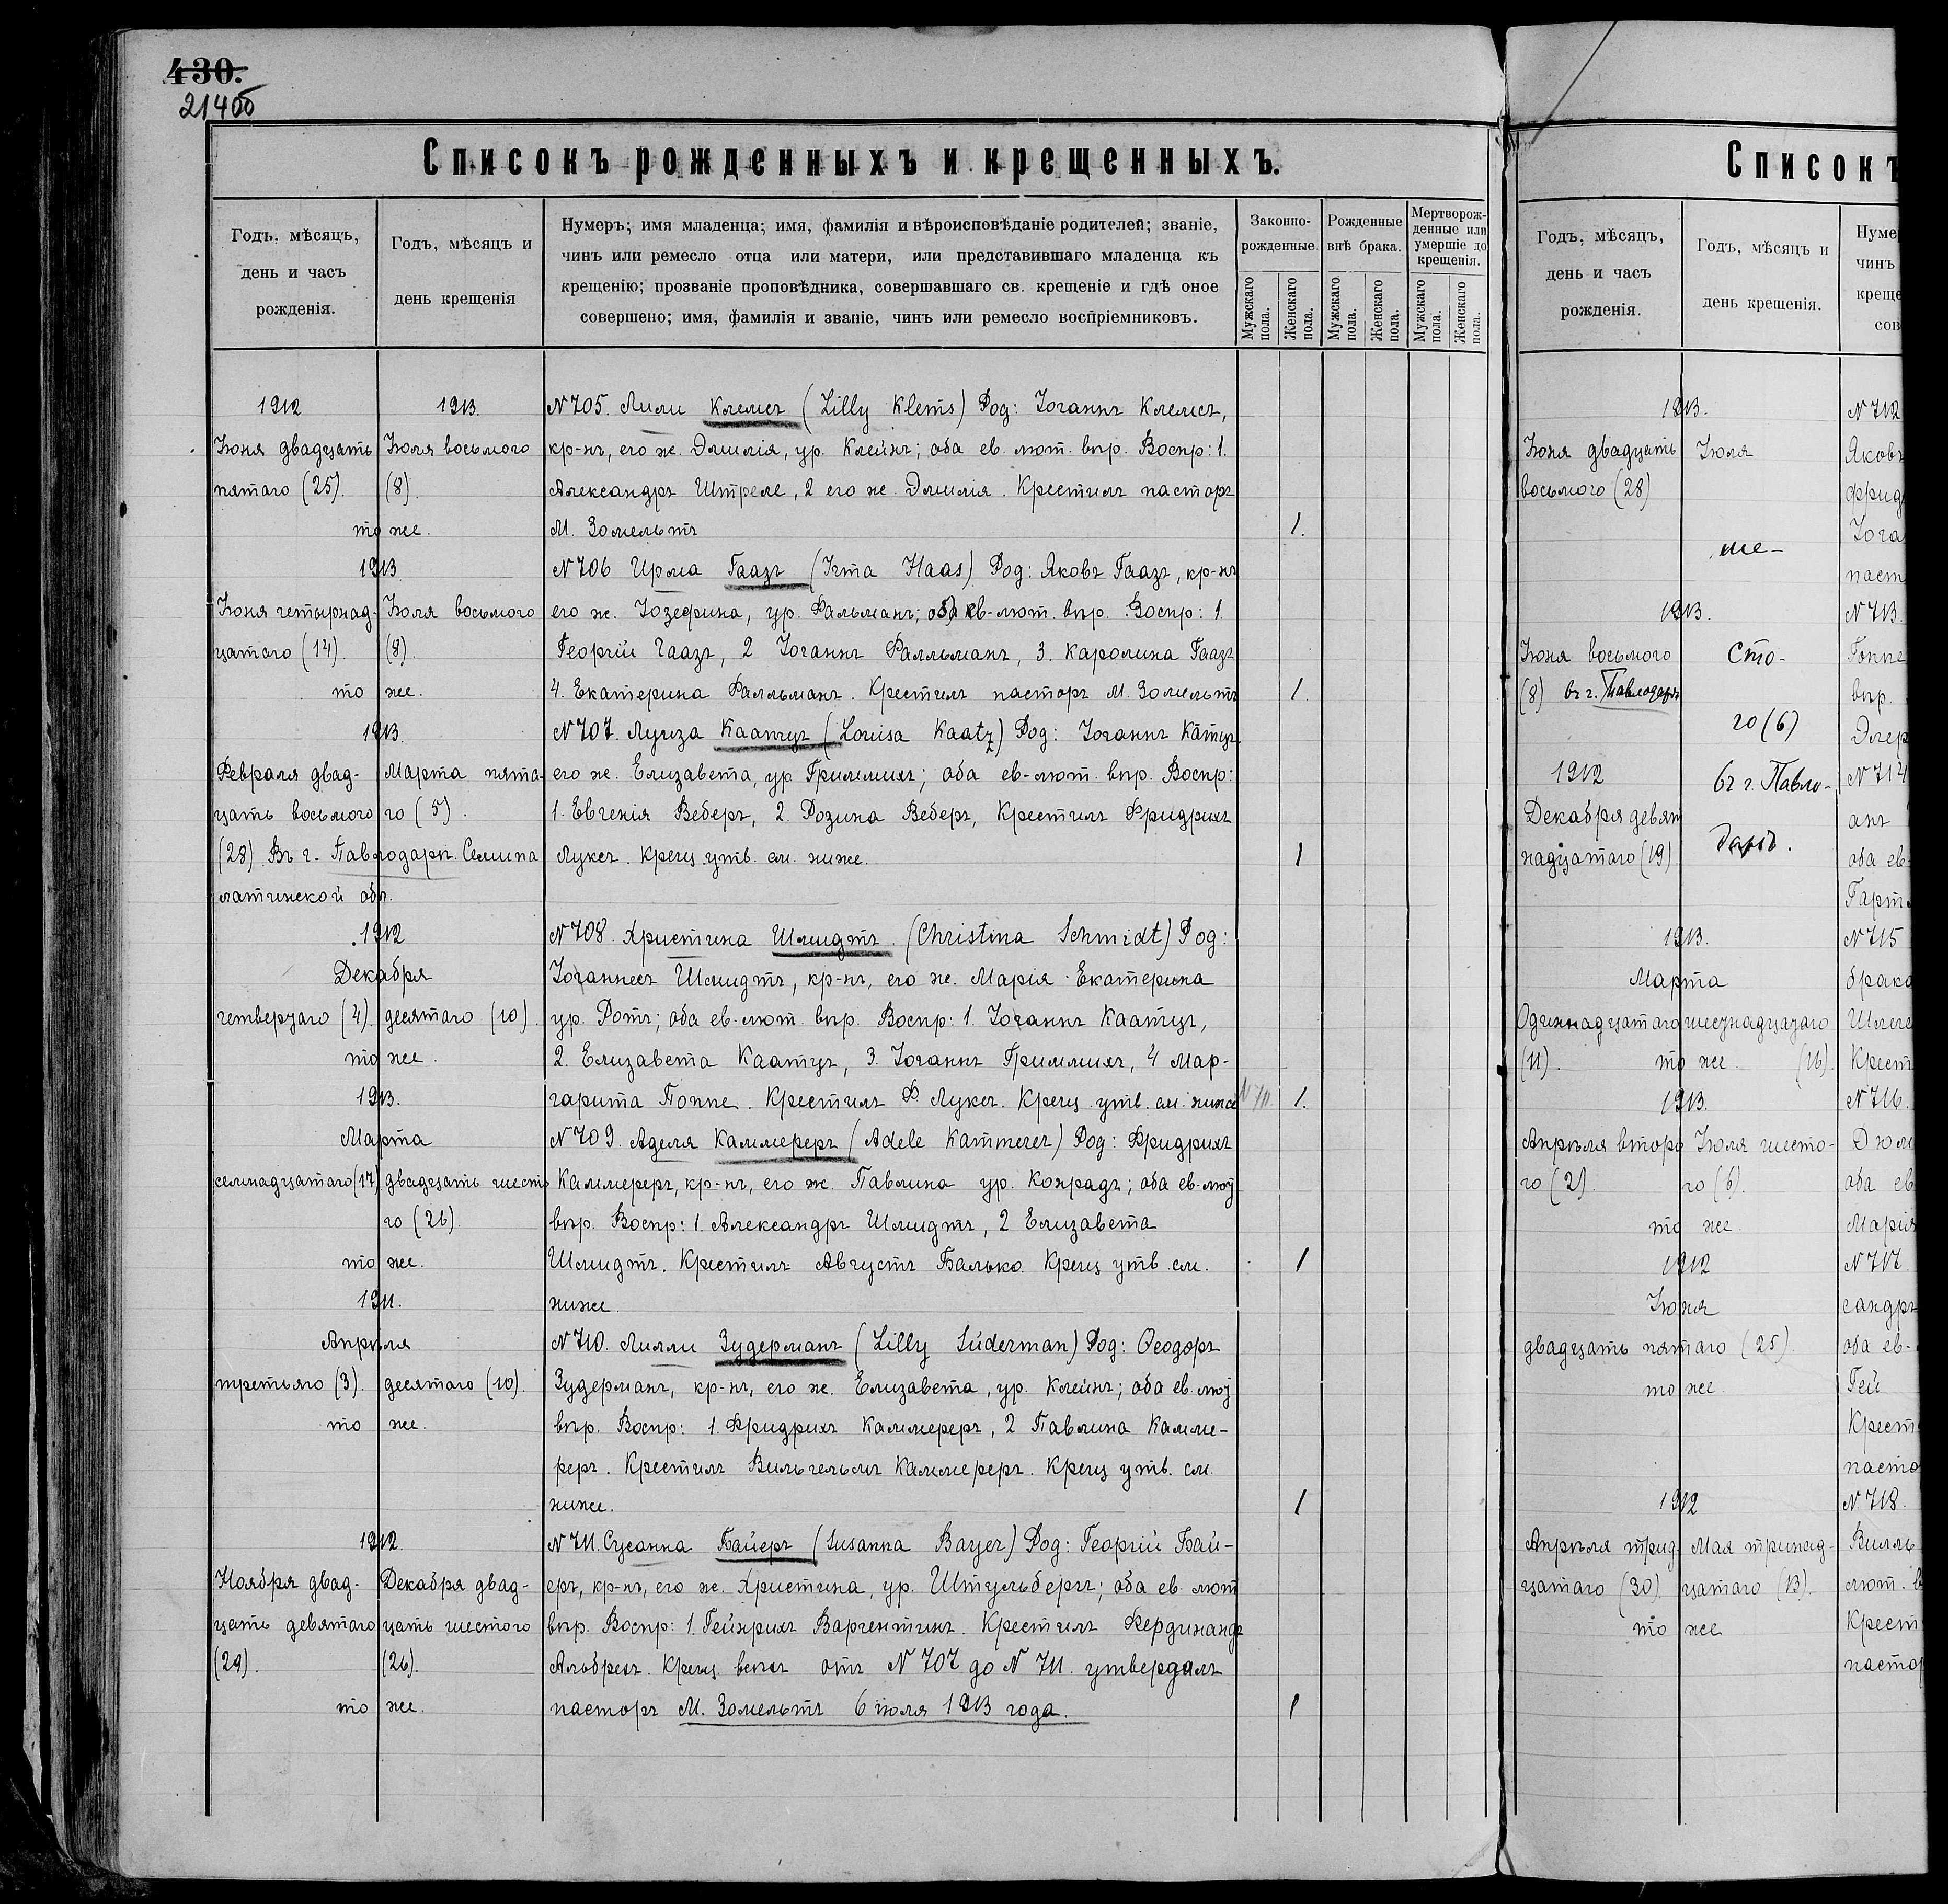 430.
214об
Списокъ рожденныхъ и крещенныхъ.
Годъ, мѣсяцъ,
день и часъ
рожденія.
Годъ, мѣсяцъ и
день крещенія
Нумеръ; имя младенца; имя, фамилія и вѣроисповѣданіе родителей; званіе,
чинъ или ремесло отца или матери, или представившаго младенца къ
крещенію; прозваніе проповѣдника, совершавшаго св. крещеніе и гдѣ оное
совершено; имя, фамилія и званіе, чинъ или ремесло воспріемниковъ.
Законно-
рожденные.
Рожденные
внѣ брака.
Мертворож-
денные или
умершіе до
крещенія.
Мужскаго пола.
Женскаго пола.
Мужскаго пола.
Женскаго пола.
Мужскаго пола.
Женскаго пола.
1912 1913. N 705. Лили Клемсъ (Lilly Klems) Род: Іоганнъ Клемсъ,
Іюня двадцать Іюля восьмого кр-нъ, его ж. Эмилія, ур. Клейнъ; оба ев. лют. вѣр. Воспр: 1.
пятаго (25). (8). Александръ Штреле, 2 его ж. Эмилія. Крестилъ пасторъ
то же. М. Зомельтъ 1.
1913 N 706 Ирма Гаазъ (Irma Haas) Род: Яковъ Гаазъ, кр-нъ
Іюня четырнад- Іюля восьмого его ж. Іозефина, ур. Фальманъ; оба ев-лют. вѣр. Воспр: 1.
цатаго (14). (8). Георгій Гаазъ, 2 Іоганнъ Фалльманъ, 3. Каролина Гаазъ
то же. 4. Екатерина Фалльманъ. Крестилъ пасторъ М. Зомельтъ 1.
1913. N 707. Луиза Каатцъ (Louisa Kaatz) Род: Іоганнъ Катцъ,
Февраля двад- Марта пята- его ж. Елизавета, ур. Гриммихъ; оба ев-лют. вѣр. Воспр:
цать восьмого го (5). 1. Евгенія Веберъ, 2. Розина Веберъ, Крестилъ Фридрихъ
(28). Въ г. Павлодарѣ. Семипа Луксъ. Крещ. утв. см. ниже. 1
латинской обл.
1912 N 708. Христина Шмидтъ. (Christina Schmidt) Род:
Декабря Іоганнесъ Шмидтъ, кр-нъ, его ж. Марія-Екатерина
четвертаго (4). десятаго (10). ур. Ротъ; оба ев.-лют. вѣр. Воспр: 1. Іоганнъ Каатцъ,
то же. 2. Елизавета Каатцъ, 3. Іоганнъ Гриммихъ, 4 Мар-
1913. гарита Поппе. Крестилъ Ф. Луксъ. Крещ. утв. см. ниже 1.
Марта N 709. Аделя Каммереръ (Adele Kammerer) Род: Фридрихъ
семнадцатаго (17) двадцать шесто Каммереръ, кр-нъ, его ж. Павлина ур. Конрадъ; оба ев.-лют
го (26). вѣр. Воспр: 1. Александръ Шмидтъ, 2 Елизавета
то же. Шмидтъ. Крестилъ Августъ Балько. Крещ утв. см. 1
1911. ниже.
Апрѣля N 710. Лилли Зудерманъ (Lilly Süderman) Род: Ѳеодоръ
третьяго (3). десятаго (10). Зудерманъ, кр-нъ, его ж. Елизавета, ур. Клейнъ; оба ев. лют
то же. вѣр. Воспр: 1. Фридрихъ Каммереръ, 2 Павлина Камме-
реръ. Крестилъ Вильгельмъ Каммереръ. Крещ утв. см.
ниже. 1
1912. N 711. Сусанна Байеръ (Susanna Bayer) Род: Георгій Бай-
Ноября двад- Декабря двад- еръ, кр-нъ, его ж. Христина, ур. Штульбергъ; оба ев. лют
цать девятаго цать шестого вѣр. Воспр: 1. Гейнрихъ Варгентинъ. Крестилъ Фердинандъ
(29). (26). Альбрехтъ. Крещ. всѣхъ отъ N 707 до N 711. утвердилъ
то же. пасторъ М. Зомельтъ 6 іюля 1913 года. 1
Списокъ
Годъ, мѣсяцъ,
день и часъ
рожденія.
Годъ, мѣсяцъ и
день крещенія.
Нуме
чинъ
креще
сов
1913. N 712
Іюня двадцать Іюля Яковъ
восьмого (28) фрид
Іога
ше- паст
1913. N 713.
Іюня восьмого сто- Гоппе
(8) въ г. Павлодарѣ вѣр.
го (6)
1912 въ г. Павло- N 714
Декабря девят анъ
надцатаго (19) дарѣ. оба ев
Гарт
1913. N 715
Марта брака
Одиннадцатаго шестнадцатаго Шлеге
(11). то же. (16). Крест
1913. N 716.
Апрѣля второ Іюля шесто-
го (2). го (6). оба ев
то же Марія
1912 N 717.
Іюня сандръ
двадцать пятаго (25) оба ев-
то же. Гей
Крест
пасто
1912 N 718.
Апрѣля трид Мая тринад- Вилль
цатаго (30) цатаго (13). лют. в
то же Крест
пастор